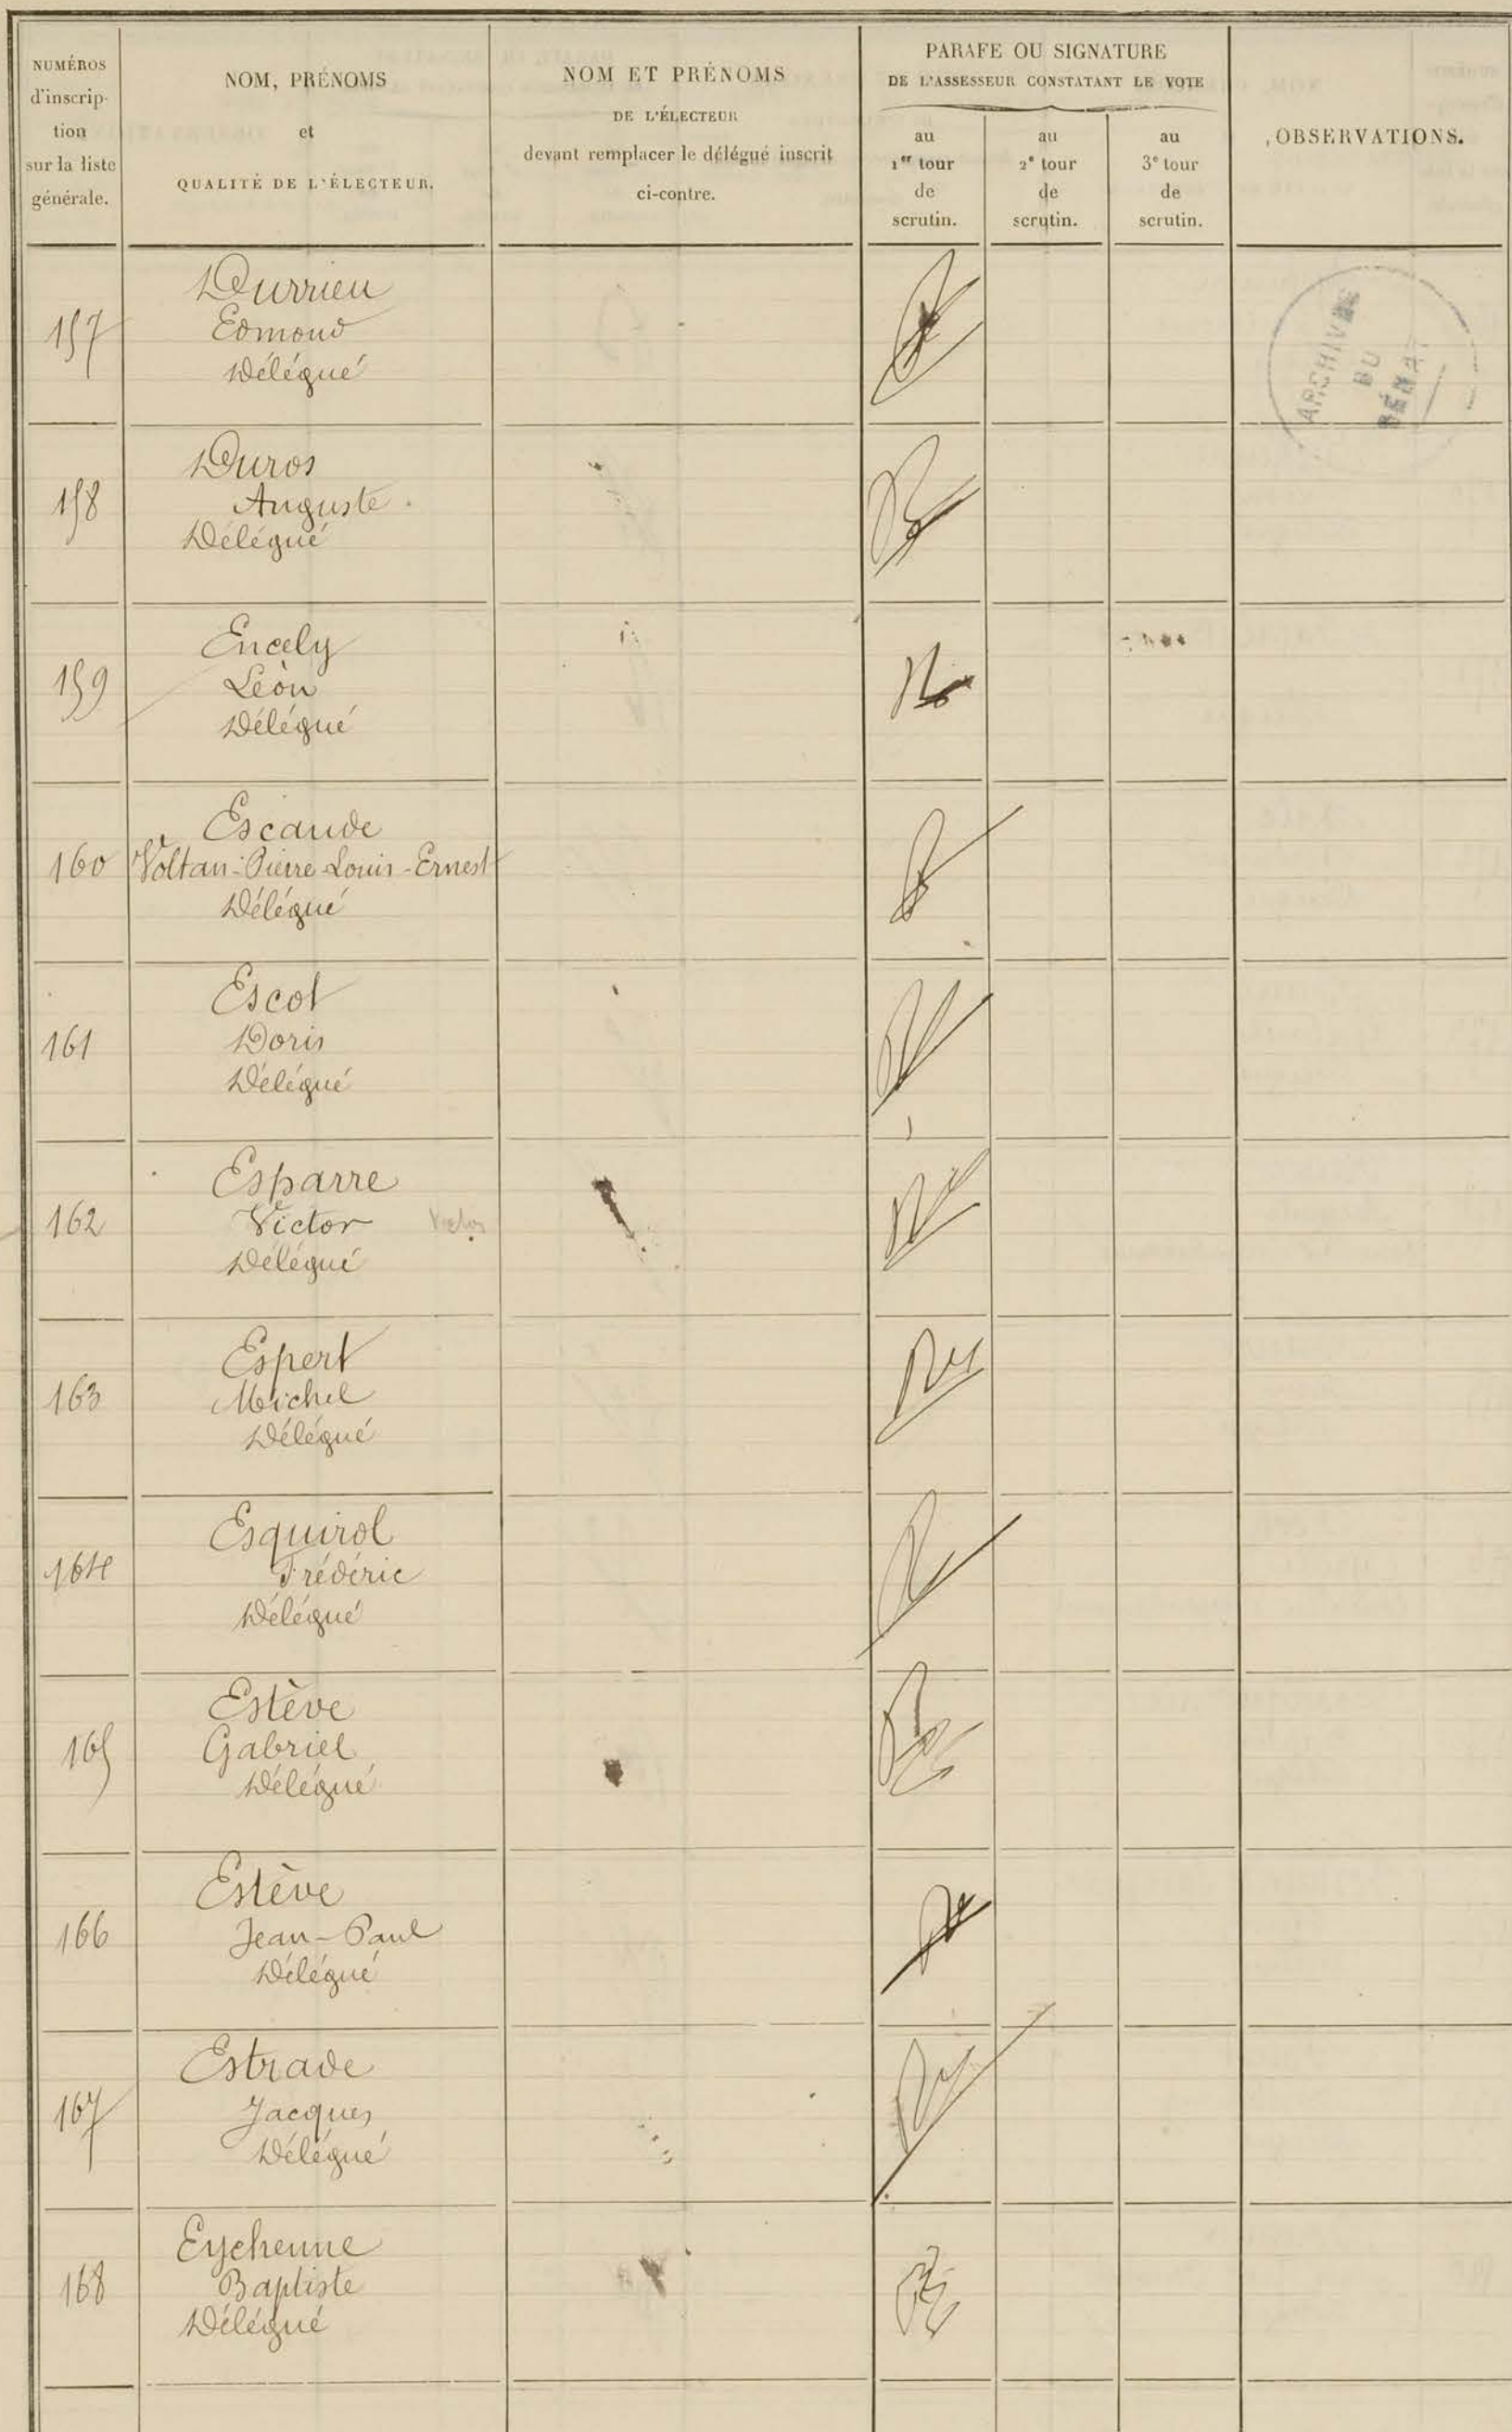 NUMÉROS
d'inscrip-
tion
sur la liste
générale.
NOM, PRÉNOMS
et
QUALITÉ DE L'ÉLECTEUR.
NOM ET PRÉNOMS
DE L'ÉLECTEUR
devant remplacer le délégué inscrit
ci-contre.
PARAFE OU SIGNATURE
DE L'ASSESSEUR CONSTATANT LE VOTE
au
1er tour
de
scrutin.
au
2e tour
de
scrutin.
au
3e tour
de
scrutin.
OBSERVATIONS.
ARCHIVES
DU
SÉNAT
157
Durrieu
Edmond
Délégué
158
Duros
Auguste
Délégué
159
Encely
Léon
Délégué
160
Escande
Voltan-Pierre-Louis-Ernest
Délégué
161
Escot
Doris
Délégué
162
Esparre
Victor Victor
Délégué
163
Espert
Michel
Délégué
164
Esquirol
Frédéric
Délégué
165
Estève
Gabriel
Délégué
166
Estève
Jean-Paul
Délégué
167
Estrade
Jacques
Délégué
168
Eychenne
Baptiste
Délégué